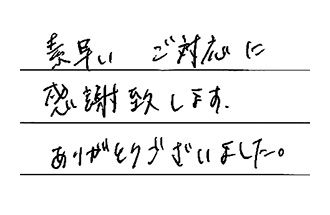 素早い ご対応に
感謝致します.
ありがとうございました。